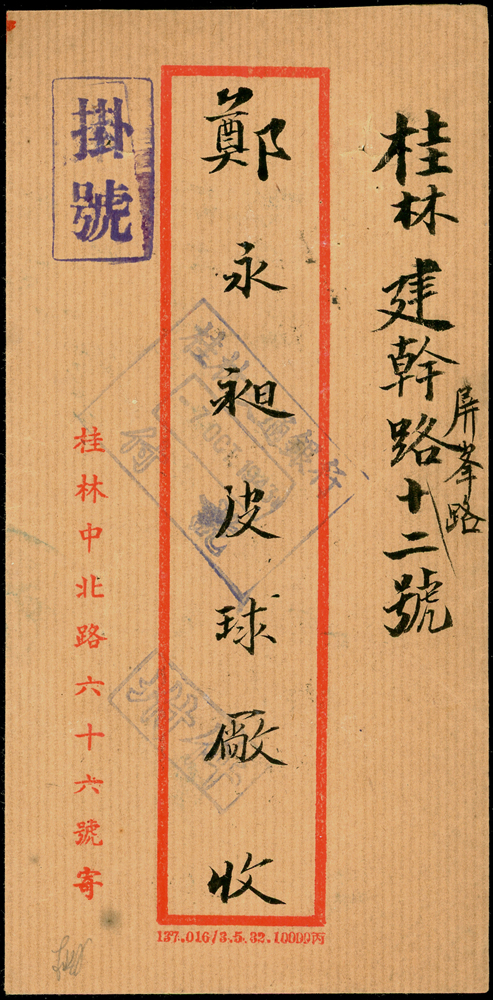 桂林建幹路十二號
屏峯路
鄭永昶皮球廠收
掛號
桂林中北路六十六號寄
137.016/3.5.32.10000丙